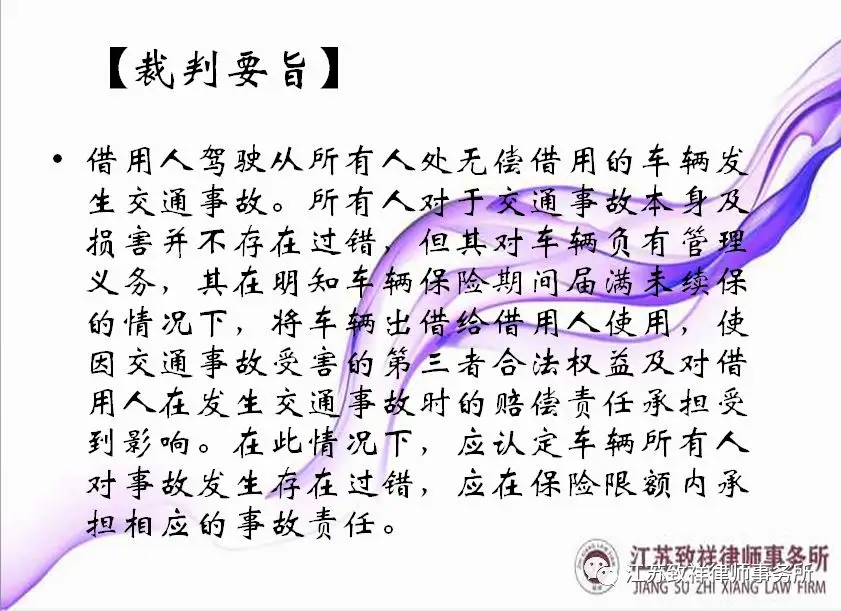 【裁判要旨】
• 借用人驾驶从所有人处无偿借用的车辆发
生交通事故。所有人对于交通事故本身及
损害并不存在过错，但其对车辆负有管理
义务，其在明知车辆保险期间届满未续保
的情况下，将车辆出借给借用人使用，使
因交通事故受害的第三者合法权益及对借
用人在发生交通事故时的赔偿责任承担受
到影响。在此情况下，应认定车辆所有人
对事故发生存在过错，应在保险限额内承
担相应的事故责任。
江苏致祥律师事务所
江苏致祥律师事务所
JIANG SU ZHI XIANG LAW FIRM